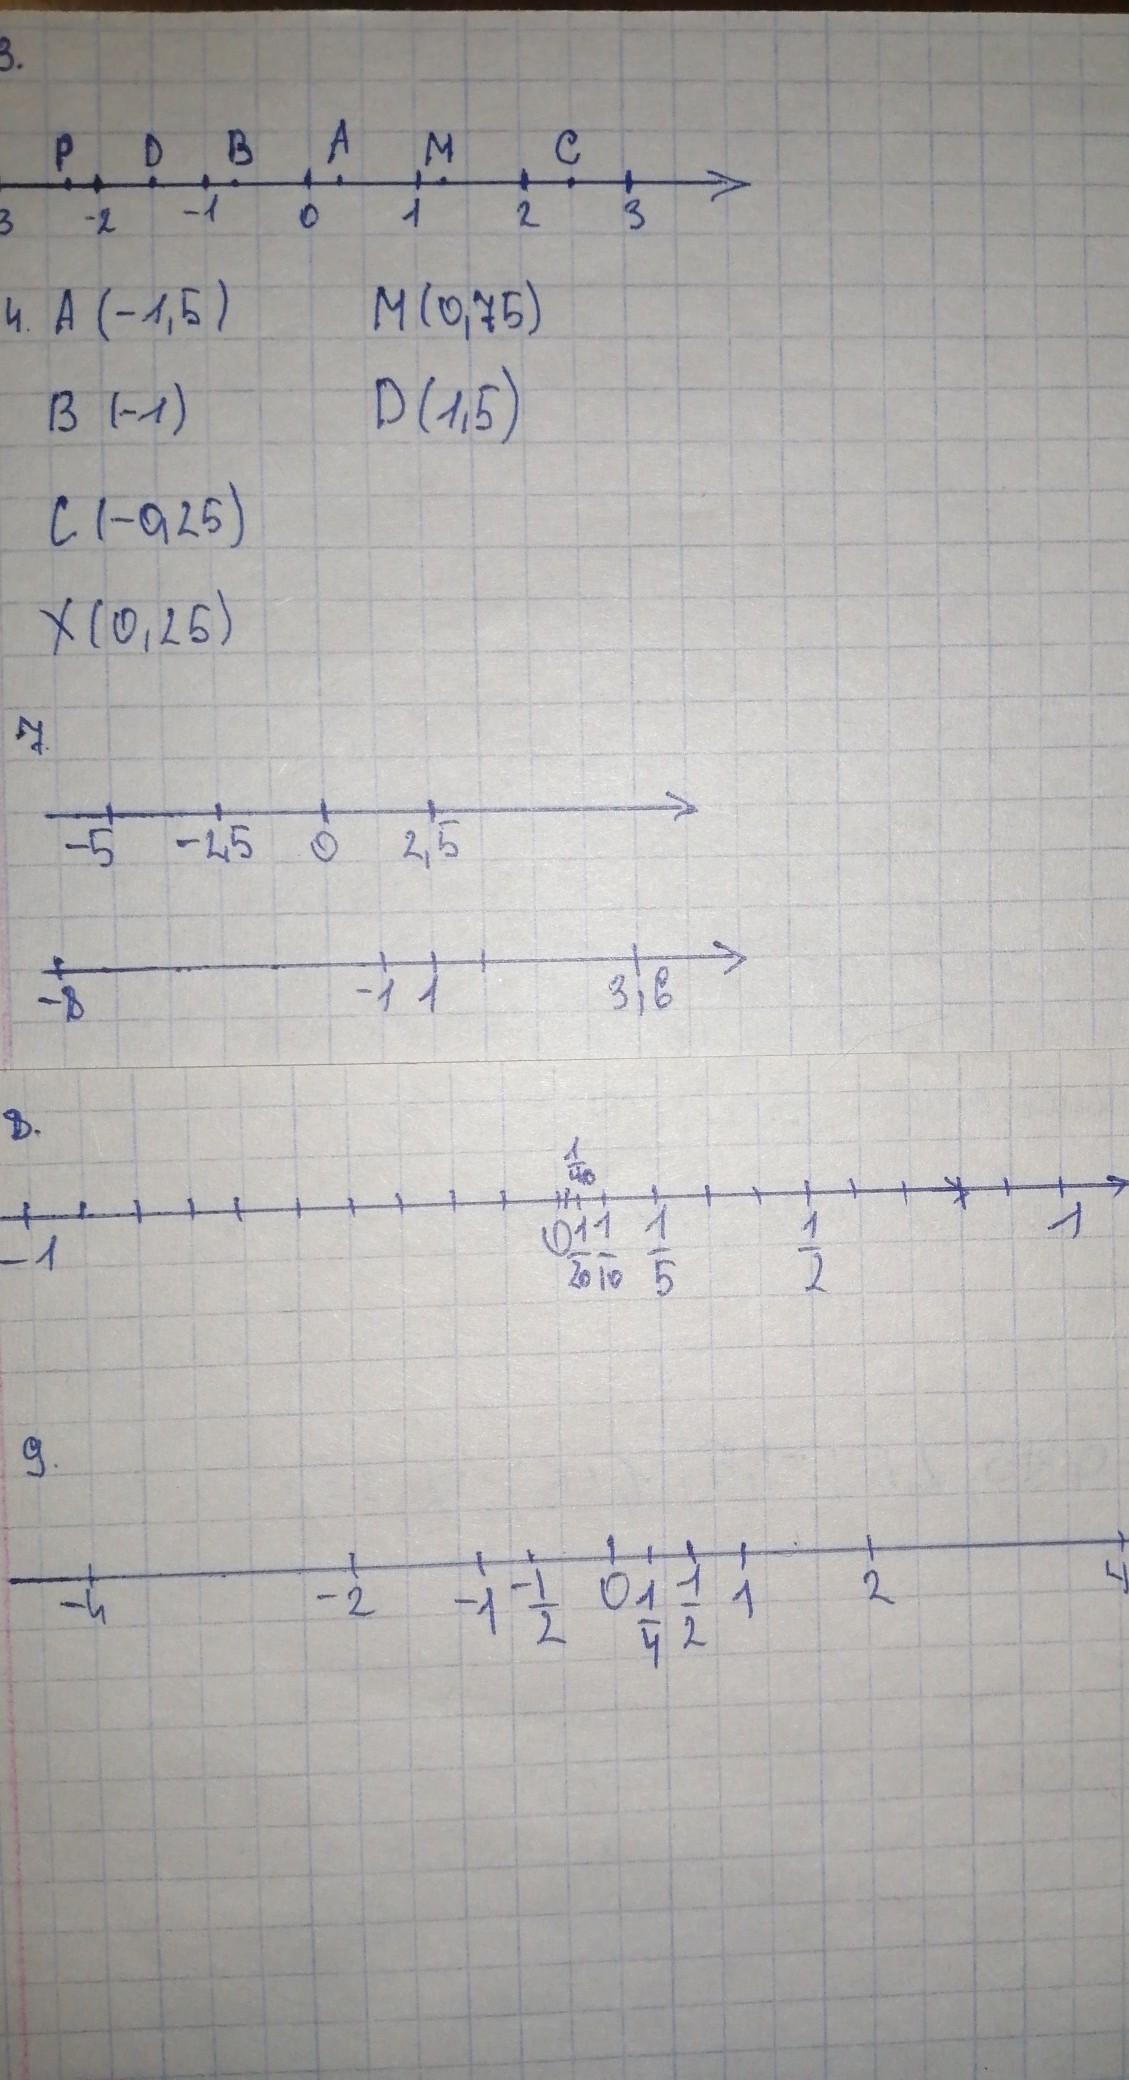 3.
P D B A M C
3 -2 -1 0 1 2 3
4. A (-1,5) M(0,75)
B (-1) D(1,5)
C (-0,25)
X (0,25)
7.
-5 -2,5 0 2,5
-8 -1 1 3,6
8.
1/40
-1 0 1/20 1/10 1/5 1/2 1
9.
-4 -2 -1 -1/2 0 1/4 1/2 1 2 4